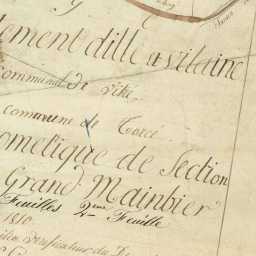 lement dille a vilaine
Commune de vitré
Commune de Torcé
ometique de Section
Grand Mainbier
Feuilles 2me Feuille
1810
vérificateur du